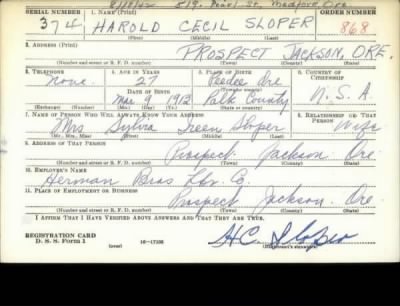 SERIAL NUMBER 1. NAME (Print) ORDER NUMBER
374 HAROLD CECIL SLOPER 868
2. ADDRESS (Print)
PROSPECT JACKSON, ORE.
(Number and street or R. F. D. number) (Town) (County) (State)
3. TELEPHONE 4. AGE IN YEARS 5. PLACE OF BIRTH 6. COUNTRY OF CITIZENSHIP
None 27 Peedee Ore
DATE OF BIRTH (Town or county)
Mar 1912 Polk County U.S.A
(Exchange) (Number) (Mo.) (Day) (Yr.) (State or country)
7. NAME OF PERSON WHO WILL ALWAYS KNOW YOUR ADDRESS 8. RELATIONSHIP OF THAT PERSON
Mrs Sylvia Sloper Wife
(Mr., Mrs., Miss) (First) (Middle) (Last)
9. ADDRESS OF THAT PERSON
Prospect Jackson Ore.
(Number and street or R. F. D. number) (Town) (County) (State)
10. EMPLOYER'S NAME
Herman Bros Lbr. Co.
11. PLACE OF EMPLOYMENT OR BUSINESS
Prospect Jackson. Ore
(Number and street or R. F. D. number) (Town) (County) (State)
I AFFIRM THAT I HAVE VERIFIED ABOVE ANSWERS AND THAT THEY ARE TRUE.
REGISTRATION CARD
D. S. S. Form 1 (over) 16-17105 H.C. Sloper
(Registrant's signature)